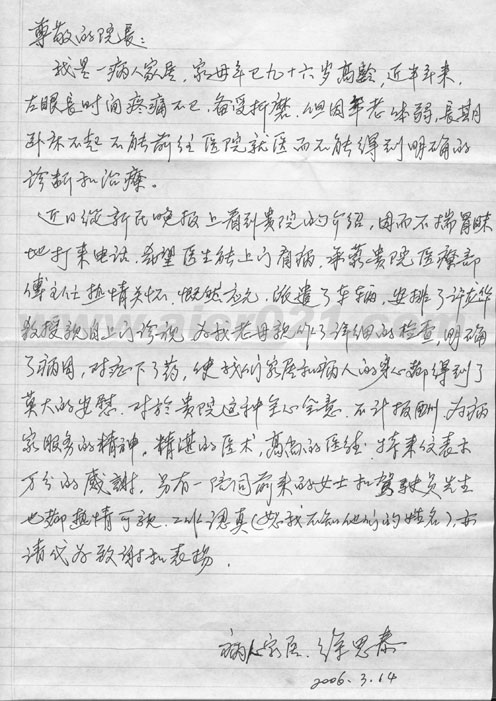 尊敬的院长:
我是一病人家居,家母年已九十六岁高龄,近半年来,
左眼长时间疼痛不已,备受折磨.但因年老体弱,长期
卧床不起不能前往医院就医而不能得到明确的
诊断和治疗。
近日從新民晚报上看到贵院的介绍,因而不揣冒昧
地打来电话,希望医生能上门看病.承蒙贵院医療部
傅主任热情关怀,慨然应允,派遣了车辆,安排了许龙华
教授親自上门诊视,为我老母親作了详细的检查,明确
了病因,对症下了药,使我们家居和病人的身心都得到了
莫大的安慰.对於贵院这种全心全意,不计报酬,为病
家服务的精神,精湛的医术,高尚的医德,特来仅表示
万分的感謝.另有一陪同前来的女士和驾驶员先生
也都热情可親,工作认真(恕我不知他们的姓名),亦
请代为致谢和表扬.
病人家居.徐思泰
2006.3.14